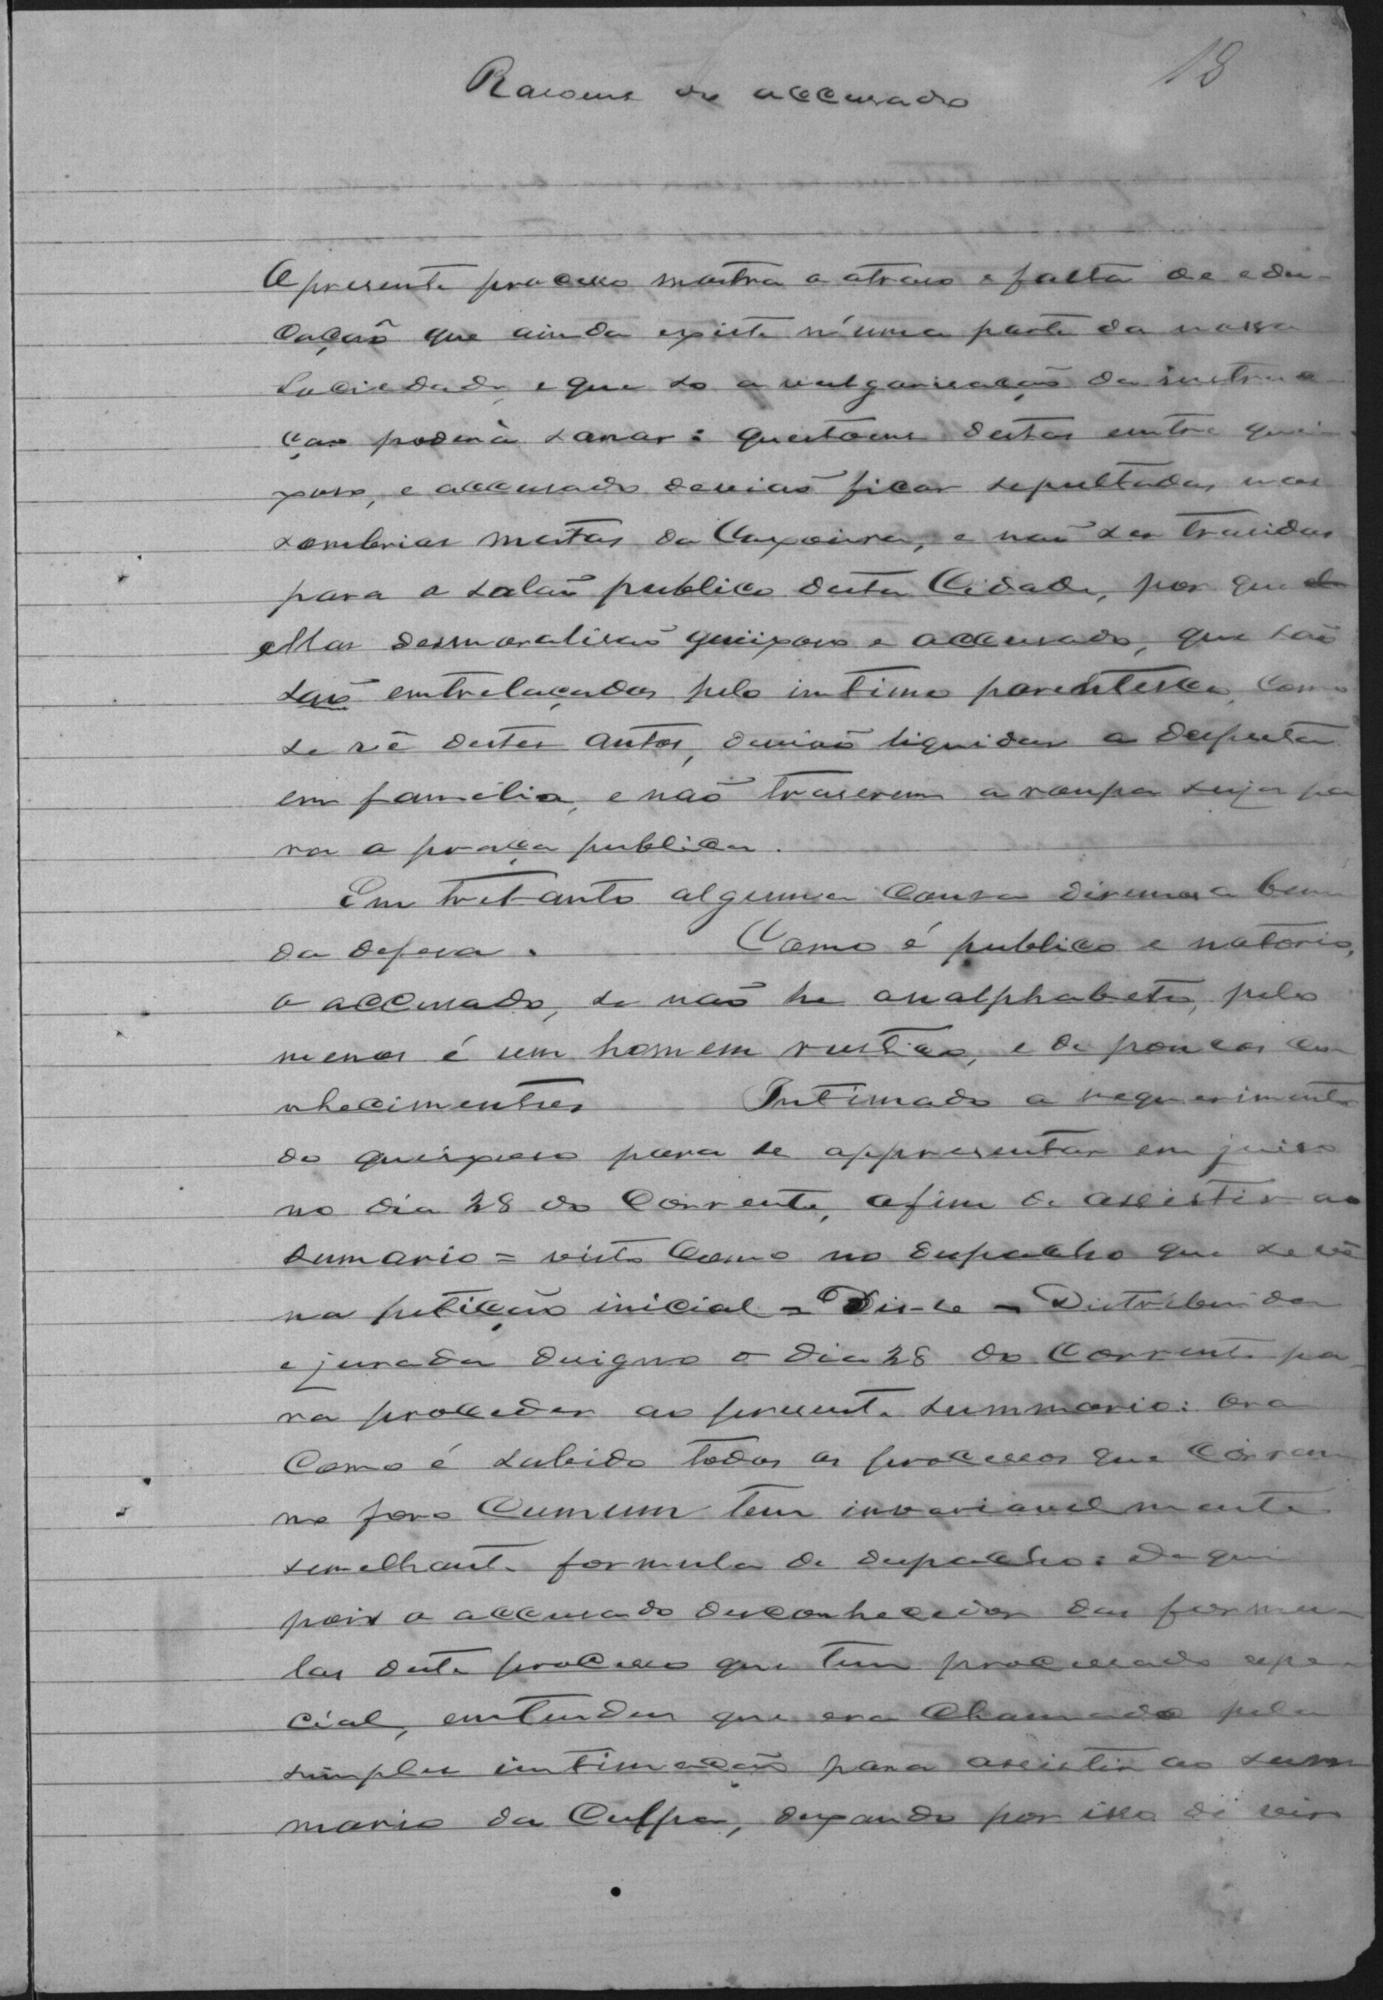 18
Rasoens do accusado
O presente processo mostra o atraso e falta de edu-
cação que ainda existe n'uma parte da nossa
Sociedade, e que so a vulgarisação da instruc-
ção poderà sanar: questoens destas entre quei-
xoso, e accusado devião ficar sepultadas nas
sombrias mattas da Caxoeira, e não ser trasidas
para o salão publico desta Cidade, por que
ellas desmoralisão queixoso e accusado, que são
são entrelaçados pelo intimo parentesco, como
se vê destes autos, devião liquidar a desputa
em familia, e não traserem a roupa suja pa
ra a praça publica.
Em tretanto alguma cousa diremos a bem
da defesa. Como é publico e notorio,
o accusado, se não he analphabeto, pelo
menos é um homem rustico, e de poucos co
nhecimentos Intimado a requerimento
do queixoso para se appresentar em juiso
no dia 28 do Corrente, afim de assistir ao
sumario = visto como no despacho que se vê
na petição inicial = Diz-se = Distribuida
e jurada designo o dia 28 do Corrente pa-
ra proceder ao presente summario: ora
Como é sabido todos os processos que Córrem
no foro Cumum tem invariavelmente
semelhante formula de despacho: da qui
pois o accusado desconhecedor das formu-
las deste processo que tem processado espe-
cial, entendeu que era chamado pela
simples intimação para assistir ao sum
mario da Culpa, dexando por isso de vir